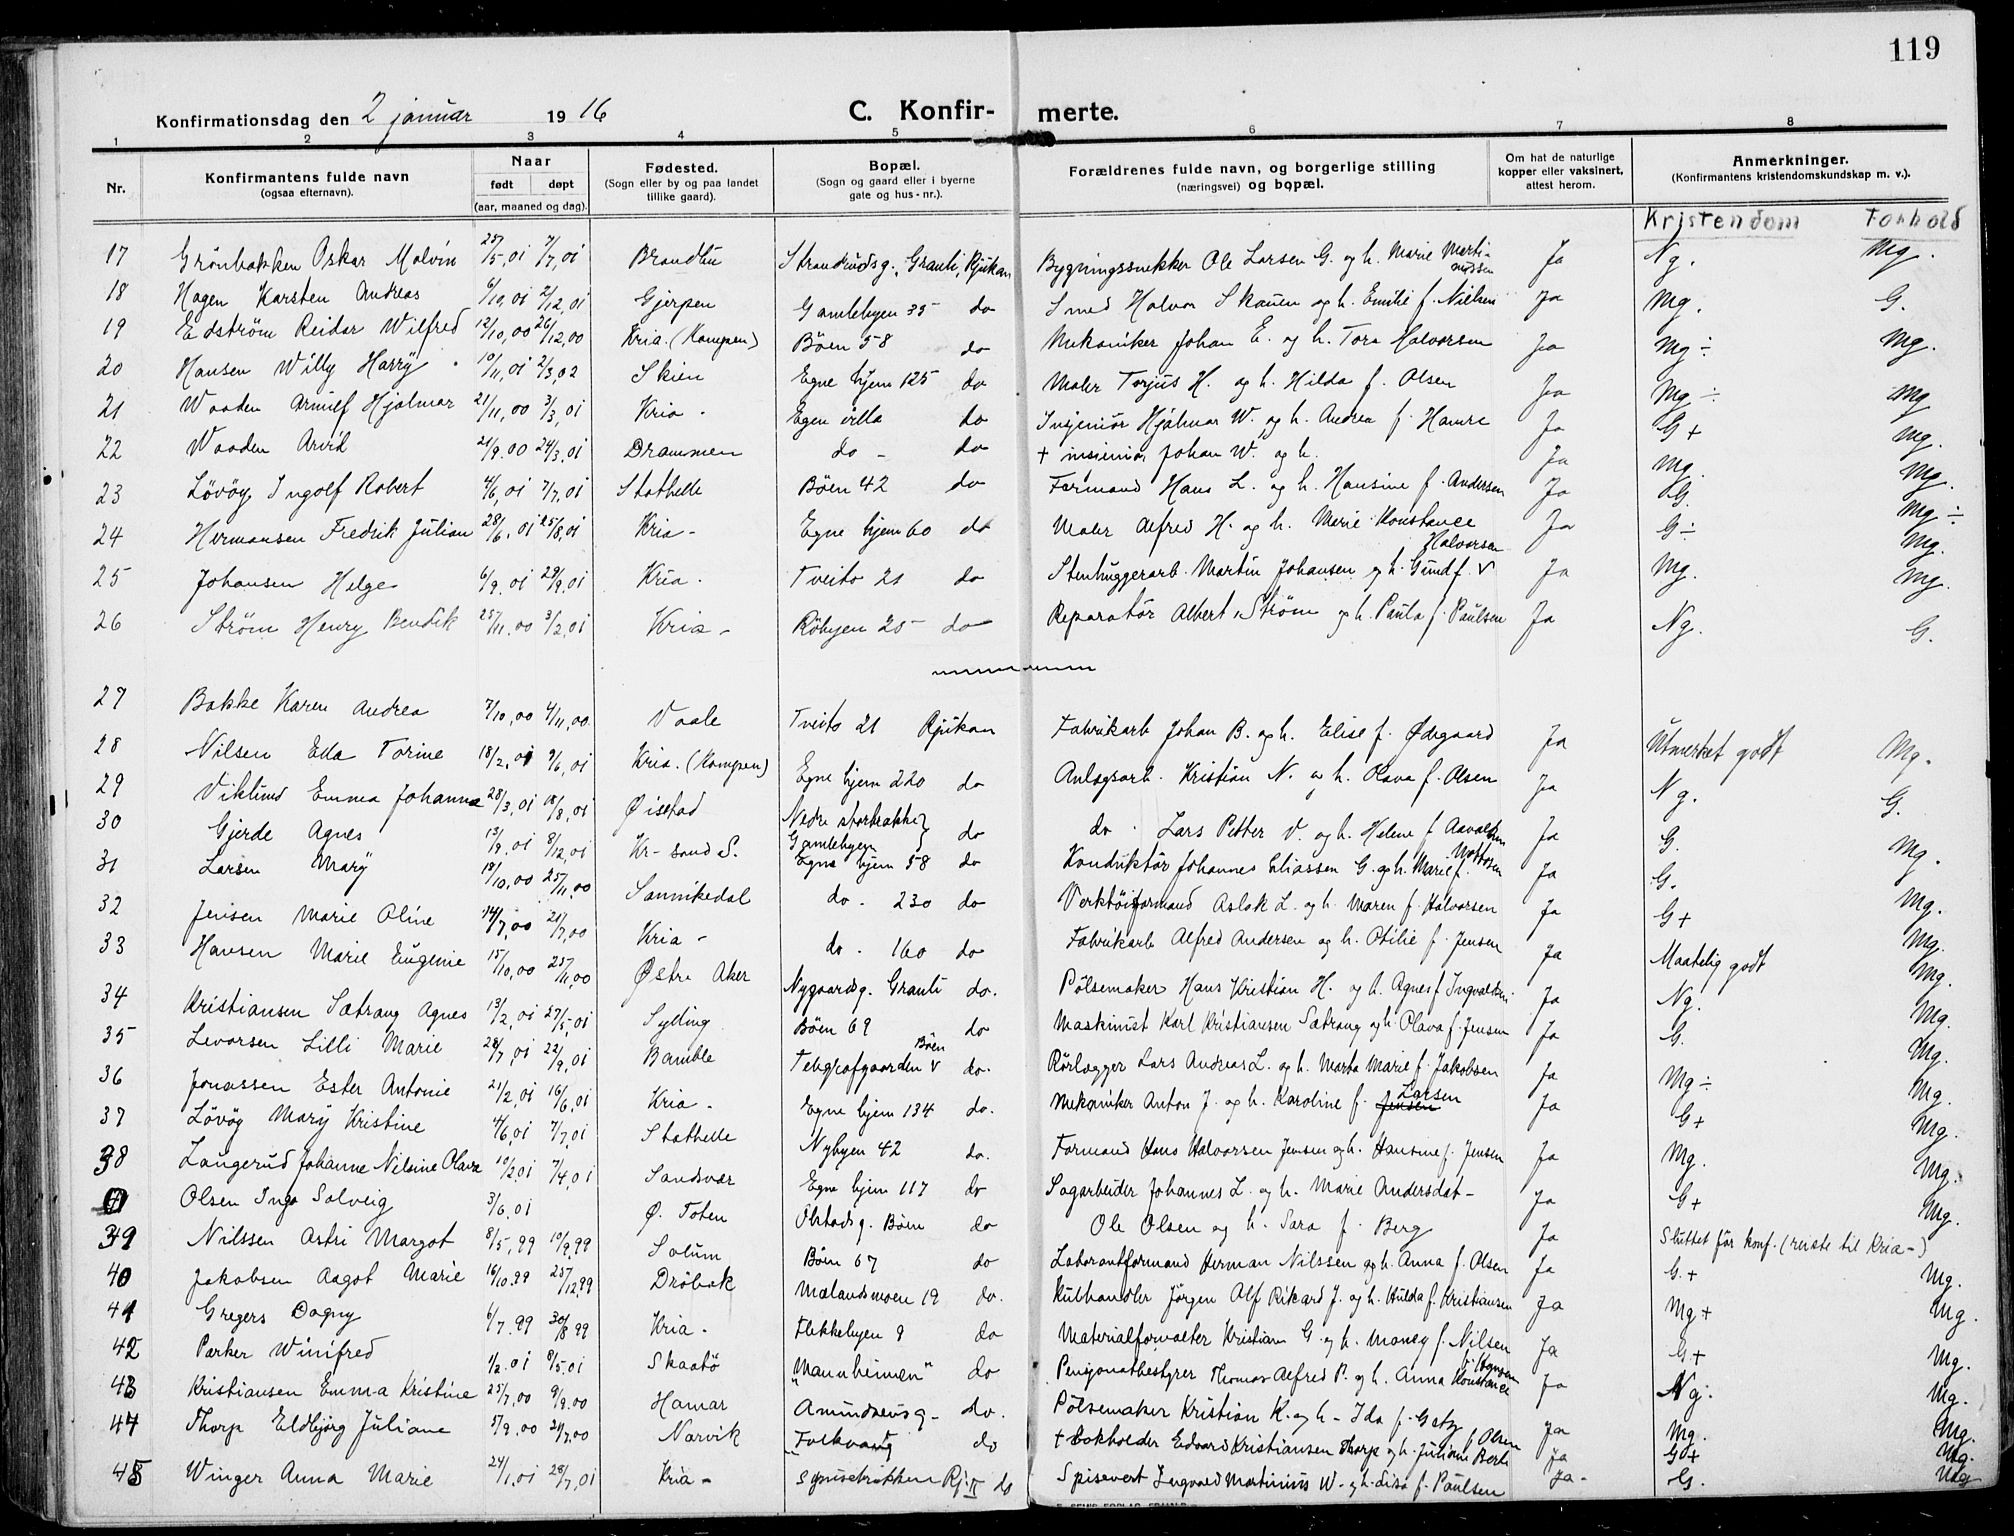 119
Konfirmationsdag den 2 januar 1916 C. Konfir- merte.
1 2 3 4 5 6 7 8
Nr. Konfirmantens fulde navn (ogsaa efternavn). Naar født døpt (aar, maaned og dag). Fødested. (Sogn eller by og paa landet tillike gaard). Bopæl. (Sogn og gaard eller i byerne gate og hus-nr.). Forældrenes fulde navn, og borgerlige stilling (næringsvei) og bopæl. Om hat de naturlige kopper eller vaksinert, attest herom. Anmerkninger. (Konfirmantens kristendomskundskap m. v.).
Kristendom Forhold
17 Grönbakken Oskar Malvin 25/5,01 7/7,01 Brandbu Strandrudsg., Granli, Rjukan Bygningssnekker Ole Larsen G. og h. Marie Martinussen Ja Ng. Mg.
18 Hagen Karsten Andreas 6/10,01 2/12,01 Gjerpen Gamlebyen 35 do Smed Halvor Skauen og h. Emilie f. Nielsen Ja Mg. G.
19 Edström Reidar Wilfred 12/10,00 26/12,00 Kria. (Kampen) Böen 58 do Mekaniker Johan E. og h. Tora Halvorsen Ja Mg ÷ Mg.
20 Hansen Willy Harry 10/11,01 2/3,02 Skien Egne hjem 125 do Maler Torjus H. og h. Hilda f. Olsen Ja Mg ÷ Mg
21 Waaden Arnulf Hjalmar 21/11,00 3/3,01 Kria. Egen villa do Insjeniör Hjalmar W. og h. Andrea f. Hamre Ja G+ Mg.
22 Waaden Arvid 21/9.00 24/3,01 Drammen do - do + insieniör Johan W. og h. Ja Mg. Mg.
23 Lövöy Ingolf Robert 4/6,01 7/7,01 Stathelle Böen 42 do Formand Hans L. og h. Hansine f. Andersen Ja G. Mg ÷
24 Hermansen Fredrik Julian 28/6,01 25/8,01 Kria- Egne hjem 60 do Maler Alfred H. og h. Marie Konstance Halvorsen Ja G÷ Mg.
25 Johansen Helge 6/9.01 29/9.01 Kria. Tveito 21 do Stenhuggerarb. Martin Johansen og h. Gund f. v Ja Mg. Mg.
26 Ström Henry Bendik 25/11.00 3/2,01 Kria- Röbyen 25 do Reparatör Albert Ström og h. Paula f. Paulsen Ja Ng. G.
27 Bakke Karen Andrea 7/10,00 4/11,00 Vaale Tveito 21 Rjukan Fabrikarb Johan B. og h. Elise f. Ødegaard Ja Utmerket godt Mg.
28 Nilsen Ella Torine 18/2,01 9/6,01 Kria. (Kampen) Egne hjem 220 do Anlegsarb. Kristian N. og h. Olava f. Olsen Ja Ng. G.
29 Viklund Emma Johanna 28/3,01 18/8,01 Øiestad Nedre stortrakke Gamlebyen do do. Lars Petter V. og h. Helene f. Ja G. Mg.
30 Gjerde Agnes 13/9.01 8/12,01 Kr-sand S. Egne hjem 58 do Konduktör Johannes Eliassen G. og h. Marie f. Ja G. Mg.
31 Larsen Mary 19/10,00 25/11,00 Sannikedal do. 230 do Verktöiformand Aslak L. og h. Maren f. Halvorsen Ja G+ Mg.
32 Jensen Marie Oline 14/7,00 21/7,00 Kria- do. 160 do Fabrikarb Alfred Andersen og h. Otilie f. Jensen Ja Maatelig godt Mg.
33 Hansen Marie Eugenie 15/10,00 25/11,00 Østre Aker Nygaardsg. Granli do. Pölsemaker Hans Kristian H. og h. Agnes f. Ingvaldsen Ja Ng. Mg.
34 Kristiansen Sætrang Agnes 13/2,01 27/5,01 Sylling Böen 69 do Maskinist Karl Kristiansen Sætrang og h. Olava f. Jensen Ja G. Mg.
35 Levorsen Lilli Marie 28/7,01 22/9,01 Bamble Telegrafgaarden v Böen do. Rörlægger Lars Andreas L. og h. Marta Marie f. Jakobsen Ja Mg ÷ Mg.
36 Jonassen Ester Antonie 21/2,01 16/6,01 Kria. Egne hjem 134 do. Mekaniker Anton J. og h. Karoline f. Jensen Larsen Ja G+ Mg.
37 Lövöy Mary Kristine 4/6,01 7/7,01 Stathelle Nybyen 42 do. Formand Hans Halvorsen Jensen og h. Hansine f. Jensen Ja Mg. Mg.
38 Langerud Johanne Nilsine Olava 10/2,01 7/4,01 Sandsvær Egne hjem 117 do Sagarbeider Johannes L. og h. Marie Andersdat- Ja G+ Mg.
0 Olsen Inga Solveig 3/6.01 Ø. Toten Olstadsg. Böen do Ole Olsen og h. Sara f. Berg Ja Sluttet för konf. (reiste til Kria-)
39 Nilssen Astri Margot 8/5,99 10/9,99 Solum Böen 67 do Laborantformand Herman Nilssen og h. Anna f. Olsen Ja G.+ Mg.
40 Jakobsen Aagot Marie 16/10.99 25/12,99 Dröbak Mælandsmoen 19 do. Kulhandler Jörgen Alf Rikard J. og h. Hulda f. Kristiansen Ja Mg+ Mg.
41 Gregers Dagny 6/7.99 30/8 99 Kria. Flekkebyen 9 do Materialforvalter Kristian G. og h. Maney f. Nilsen Ja G+ Mg.
42 Parker Winifred 1/2.01 8/5.01 Skaatö "Mannheimen" do Pensjonatbestyrer Thomas Alfred P. og h. Anna Konstance f. Hansen Ja Ng. Mg.
43 Kristiansen Emma Kristine 25/7,00 9/9.00 Hamar Amundsensg- do. Pölsemaker Kristian K. og h- Ida f. Gatz Ja Mg. Mg.
44 Thorp Eldbjörg Juliane 5/9.00 29/7.00 Narvik Folkvang do + bokholder Edvard Kristiansen Thorp og h. Juliane Berte f. Olsen Ja G+ Mg.
45 Winger Anna Marie 24/1,01 28/7,01 Kria- Rj. II do Spisevert Ingvald Martinius W. og h. Lisa f. Paulsen Ja- G. Mg